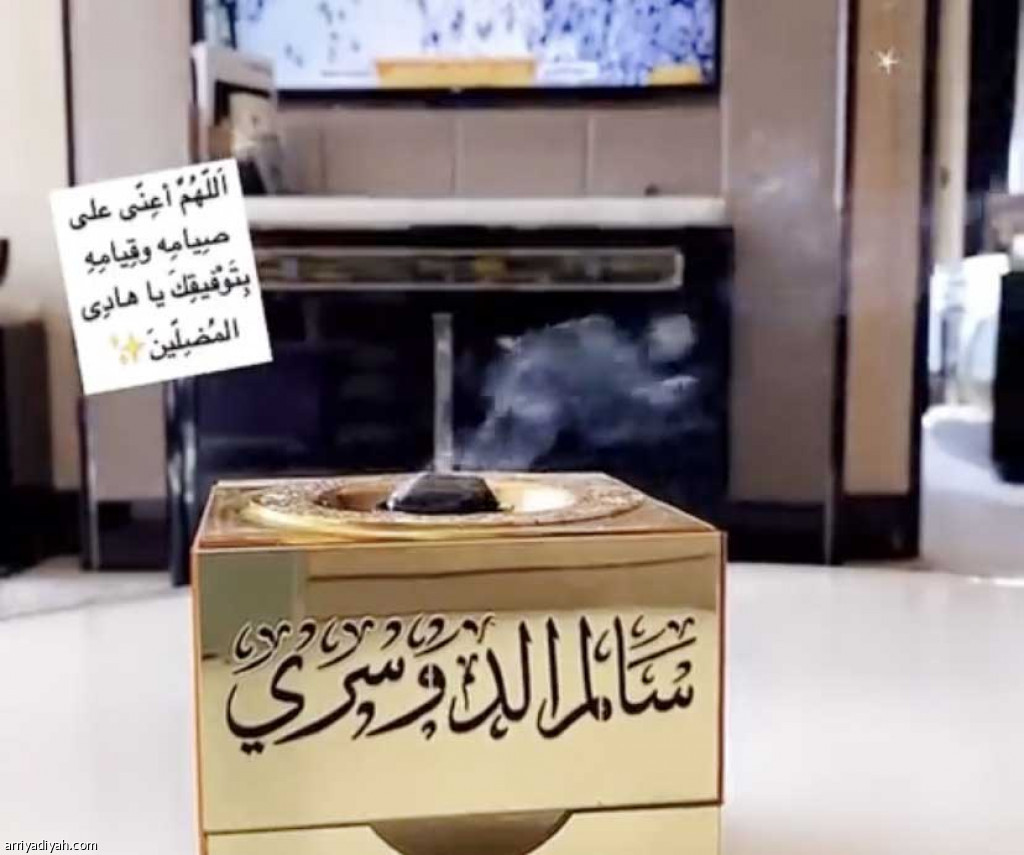 اَللّهُمَّ اَعِنّى على
صيِامِه وقِيامِهِ
بِتَوْفيقِكَ يا هادِى
المُضِلّينَ✨
سَالم الدوَسَري
arriyadiyah.com